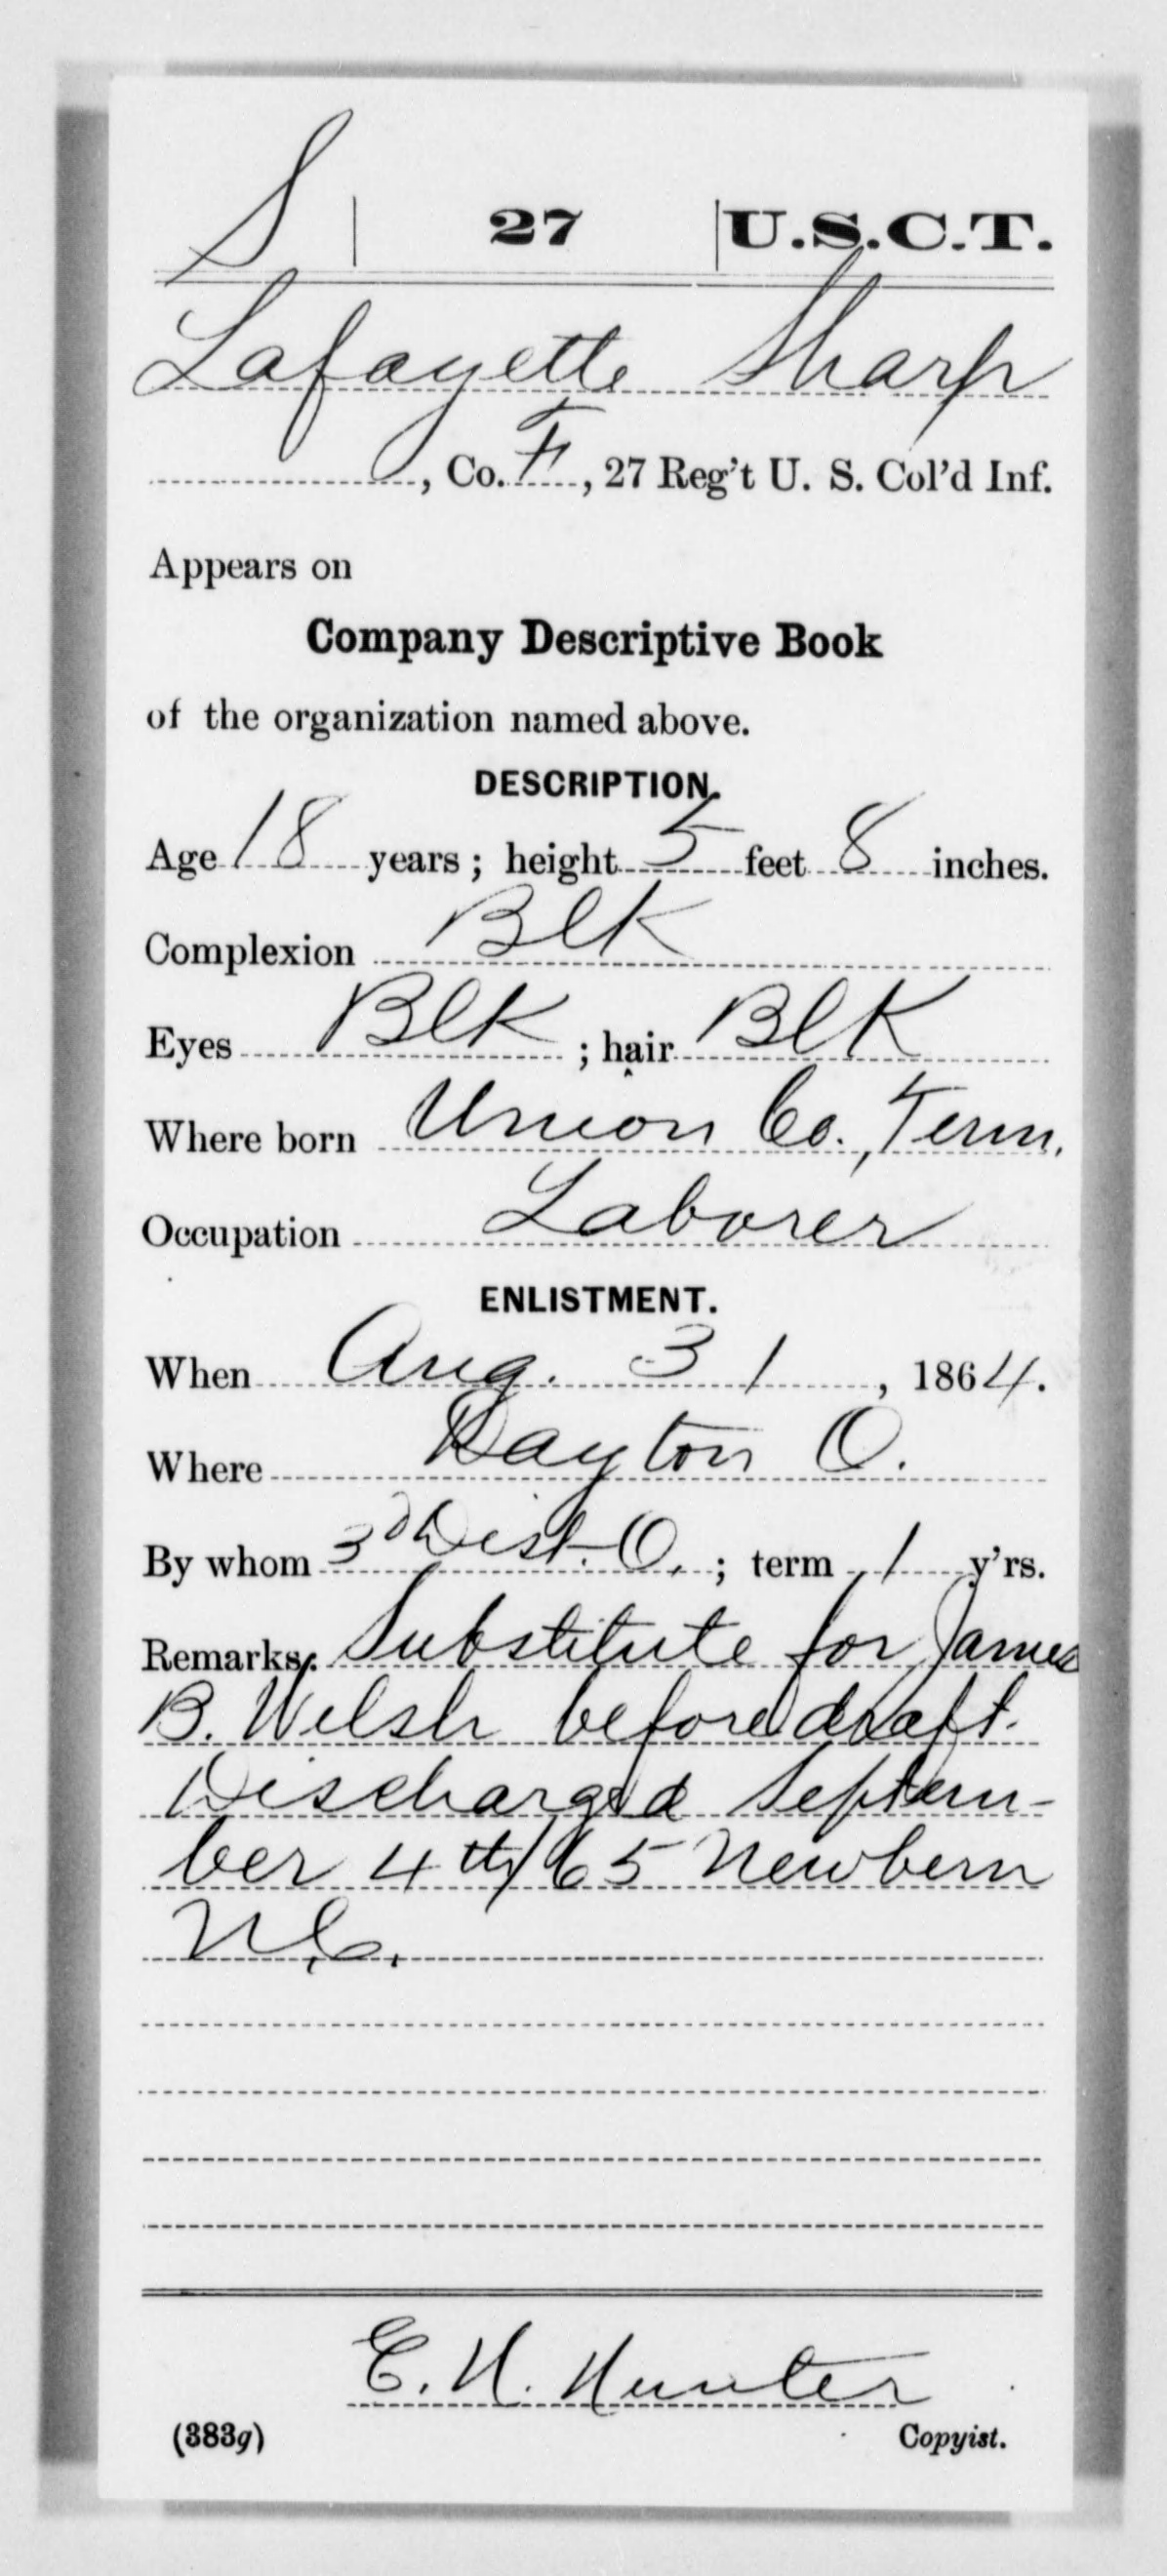 S | 27 | U.S.C.T.
Lafayette Sharp
, Co. F, 27 Reg't U. S. Col'd Inf.
Appears on
Company Descriptive Book
of the organization named above.
DESCRIPTION.
Age 18 years; height 5 feet 8 inches.
Complexion Blk
Eyes Blk ; hair Blk
Where born Union Co., Tenn.
Occupation Laborer
ENLISTMENT.
When Aug. 31, 1864.
Where Dayton O.
By whom 3d Dist. O. ; term 1 y'rs.
Remarks: Substitute for James
B. Welsh before draft.
Discharged Septem-
ber 4th/65 Newbern
N.C.
E. H. Hunter
(383g) Copyist.